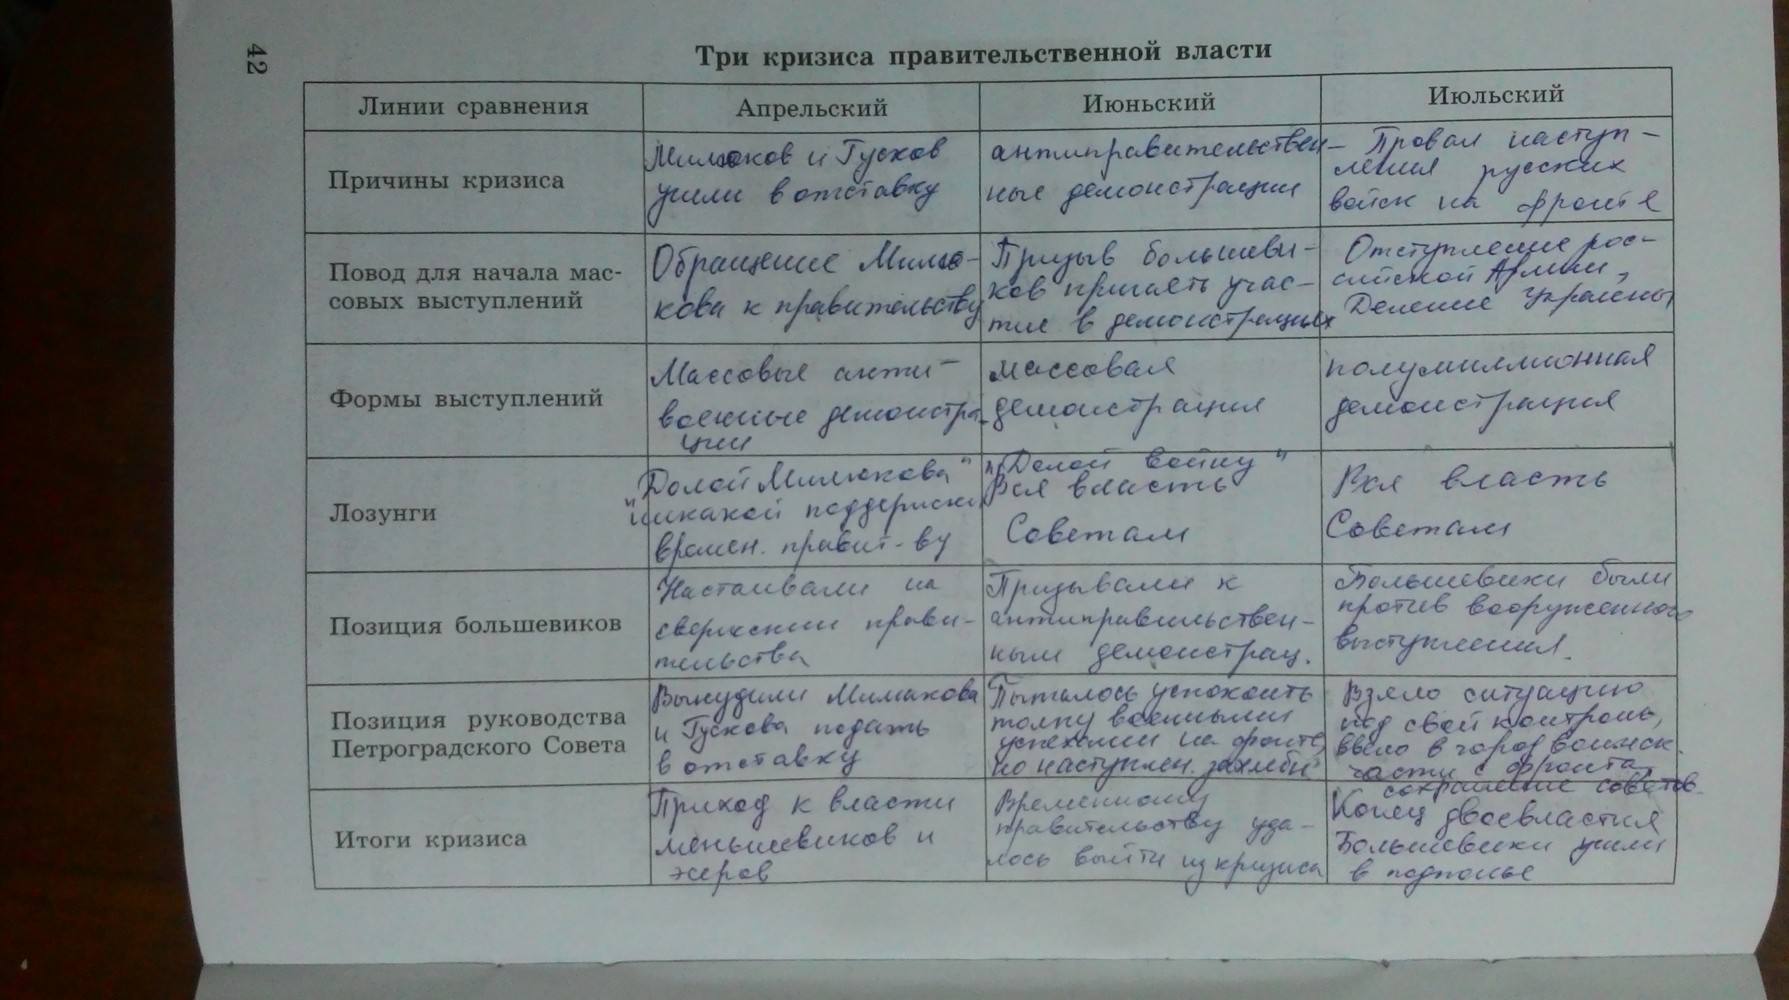 42
Три кризиса правительственной власти
Линии сравнения
Апрельский
Июньский
Июльский
Причины кризиса
Милюков и Гусков
ушли в отставку
антиправительствен-
ные демонстрации
Провал наступ-
ления русских
войск на фронте
Повод для начала мас-
совых выступлений
Обращение Милю-
кова к правительству
Призыв большеви-
ков принять учас-
тие в демонстрациях
Отступление рос-
сийской Армии,
Деление Украины
Формы выступлений
Массовые анти-
военные демонстра-
ции
массовая
демонстрация
полумиллионная
демонстрация
Лозунги
"Долой Милюкова"
"никакой поддержки
времен. правит-ву
"Долой войну"
Вся власть
Советам
Вся власть
Советам
Позиция большевиков
Настаивали на
свержении прави-
тельства
Призывали к
антиправительствен-
ным демонстрац.
Большевики были
против вооруженного
выступления.
Позиция руководства
Петроградского Совета
Вынудили Милюкова
и Гускова подать
в отставку
Пыталось успокоить
толпу военными
успехами на фронте,
но наступлен. захлебн
Взяло ситуацию
под свой контроль,
ввело в город воинск.
части с фронта
Итоги кризиса
Приход к власти
меньшевиков и
эсеров
Временному
правительству уда-
лось выйти из кризиса
сохранение советов
Конец двоевластия
Большевики ушли
в подполье